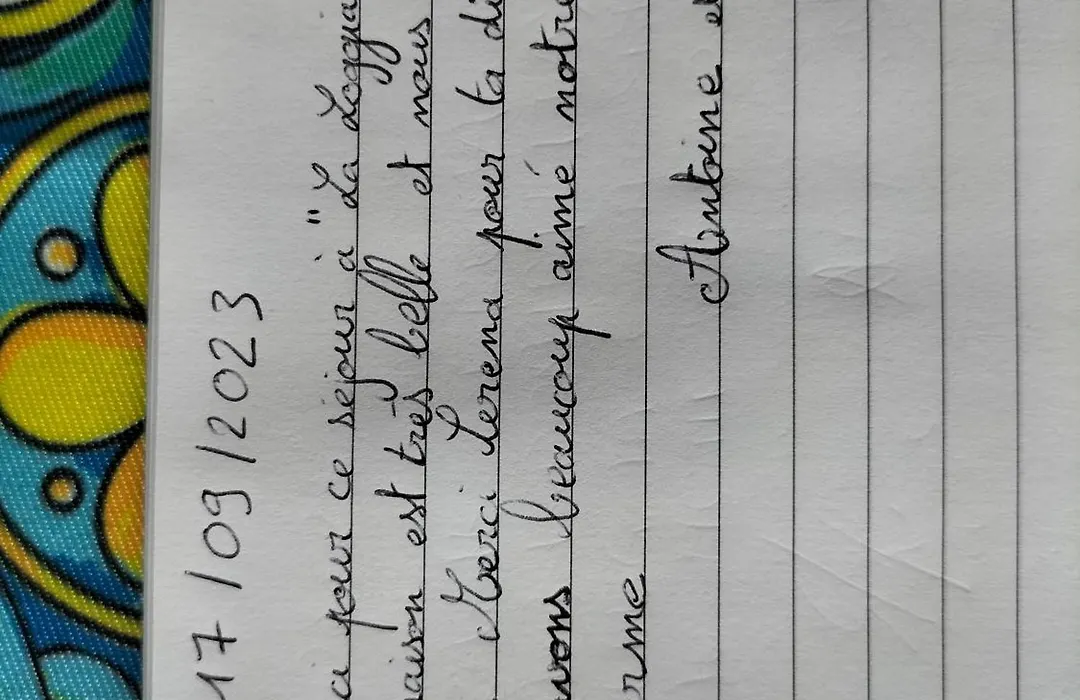 17/09/2023
a pour ce séjour à "La Loggia
aison est très belle et nous
Merci Serena pour ta di
vons beaucoup aimé notre
rme
Antoine e